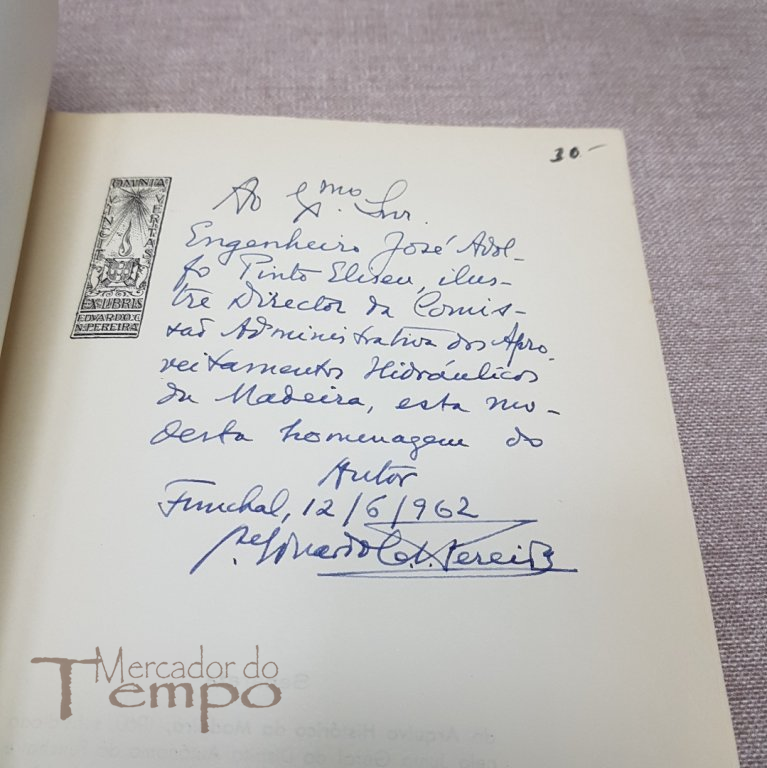 30-
OMNIA
VINCIT
VERITAS
EX-LIBRIS
EDUARDO C.
N. PEREIRA
Ao Exmo. Snr.
Engenheiro José Adol-
fo Pinto Eliseu, ilus-
tre Director da Comis-
são Administrativa dos Apro-
veitamentos Hidráulicos
da Madeira, esta mo-
desta homenagem do
Autor
Funchal, 12/6/962
Pe. Eduardo C. N. Pereira
Mercador do
Tempo
do Arquivo Histórico da Madeira,
pela Junta Geral do Distrito Autónomo do Funchal